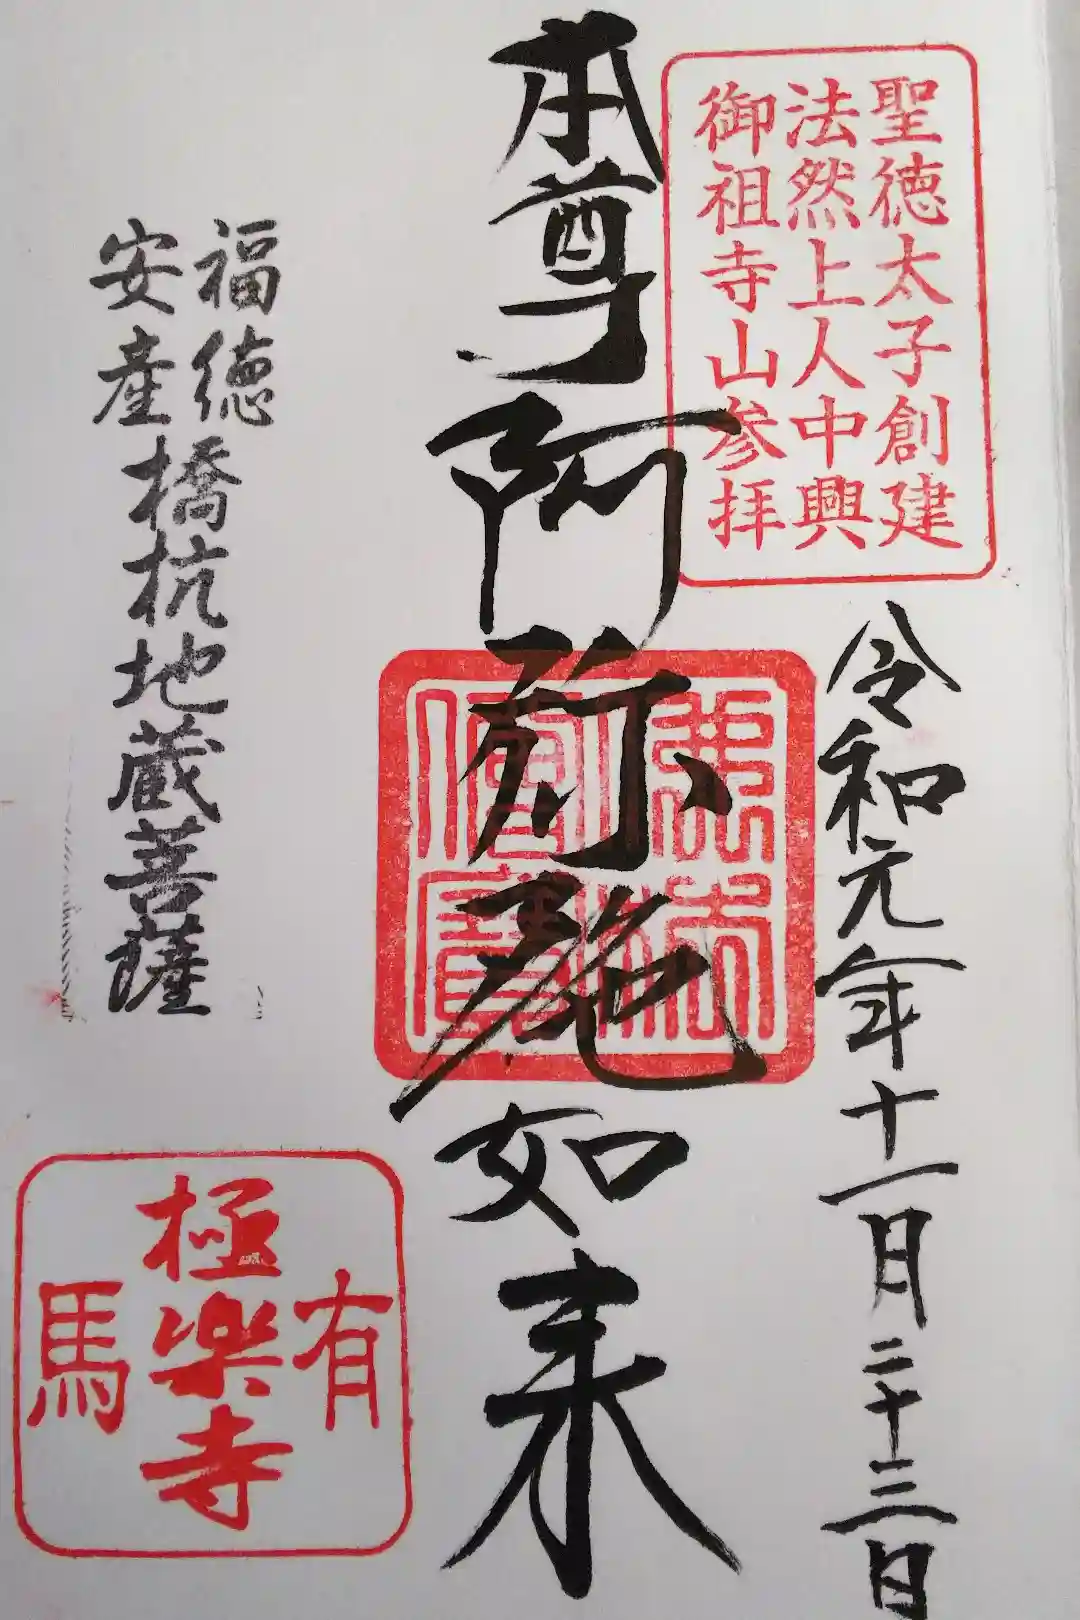 聖徳太子創建
法然上人中興
御祖寺山参拝
令和元年十一月二十三日
本尊阿弥陀如来
佛法僧寳
福徳
安産
橋杭地蔵菩薩
有馬
極楽寺